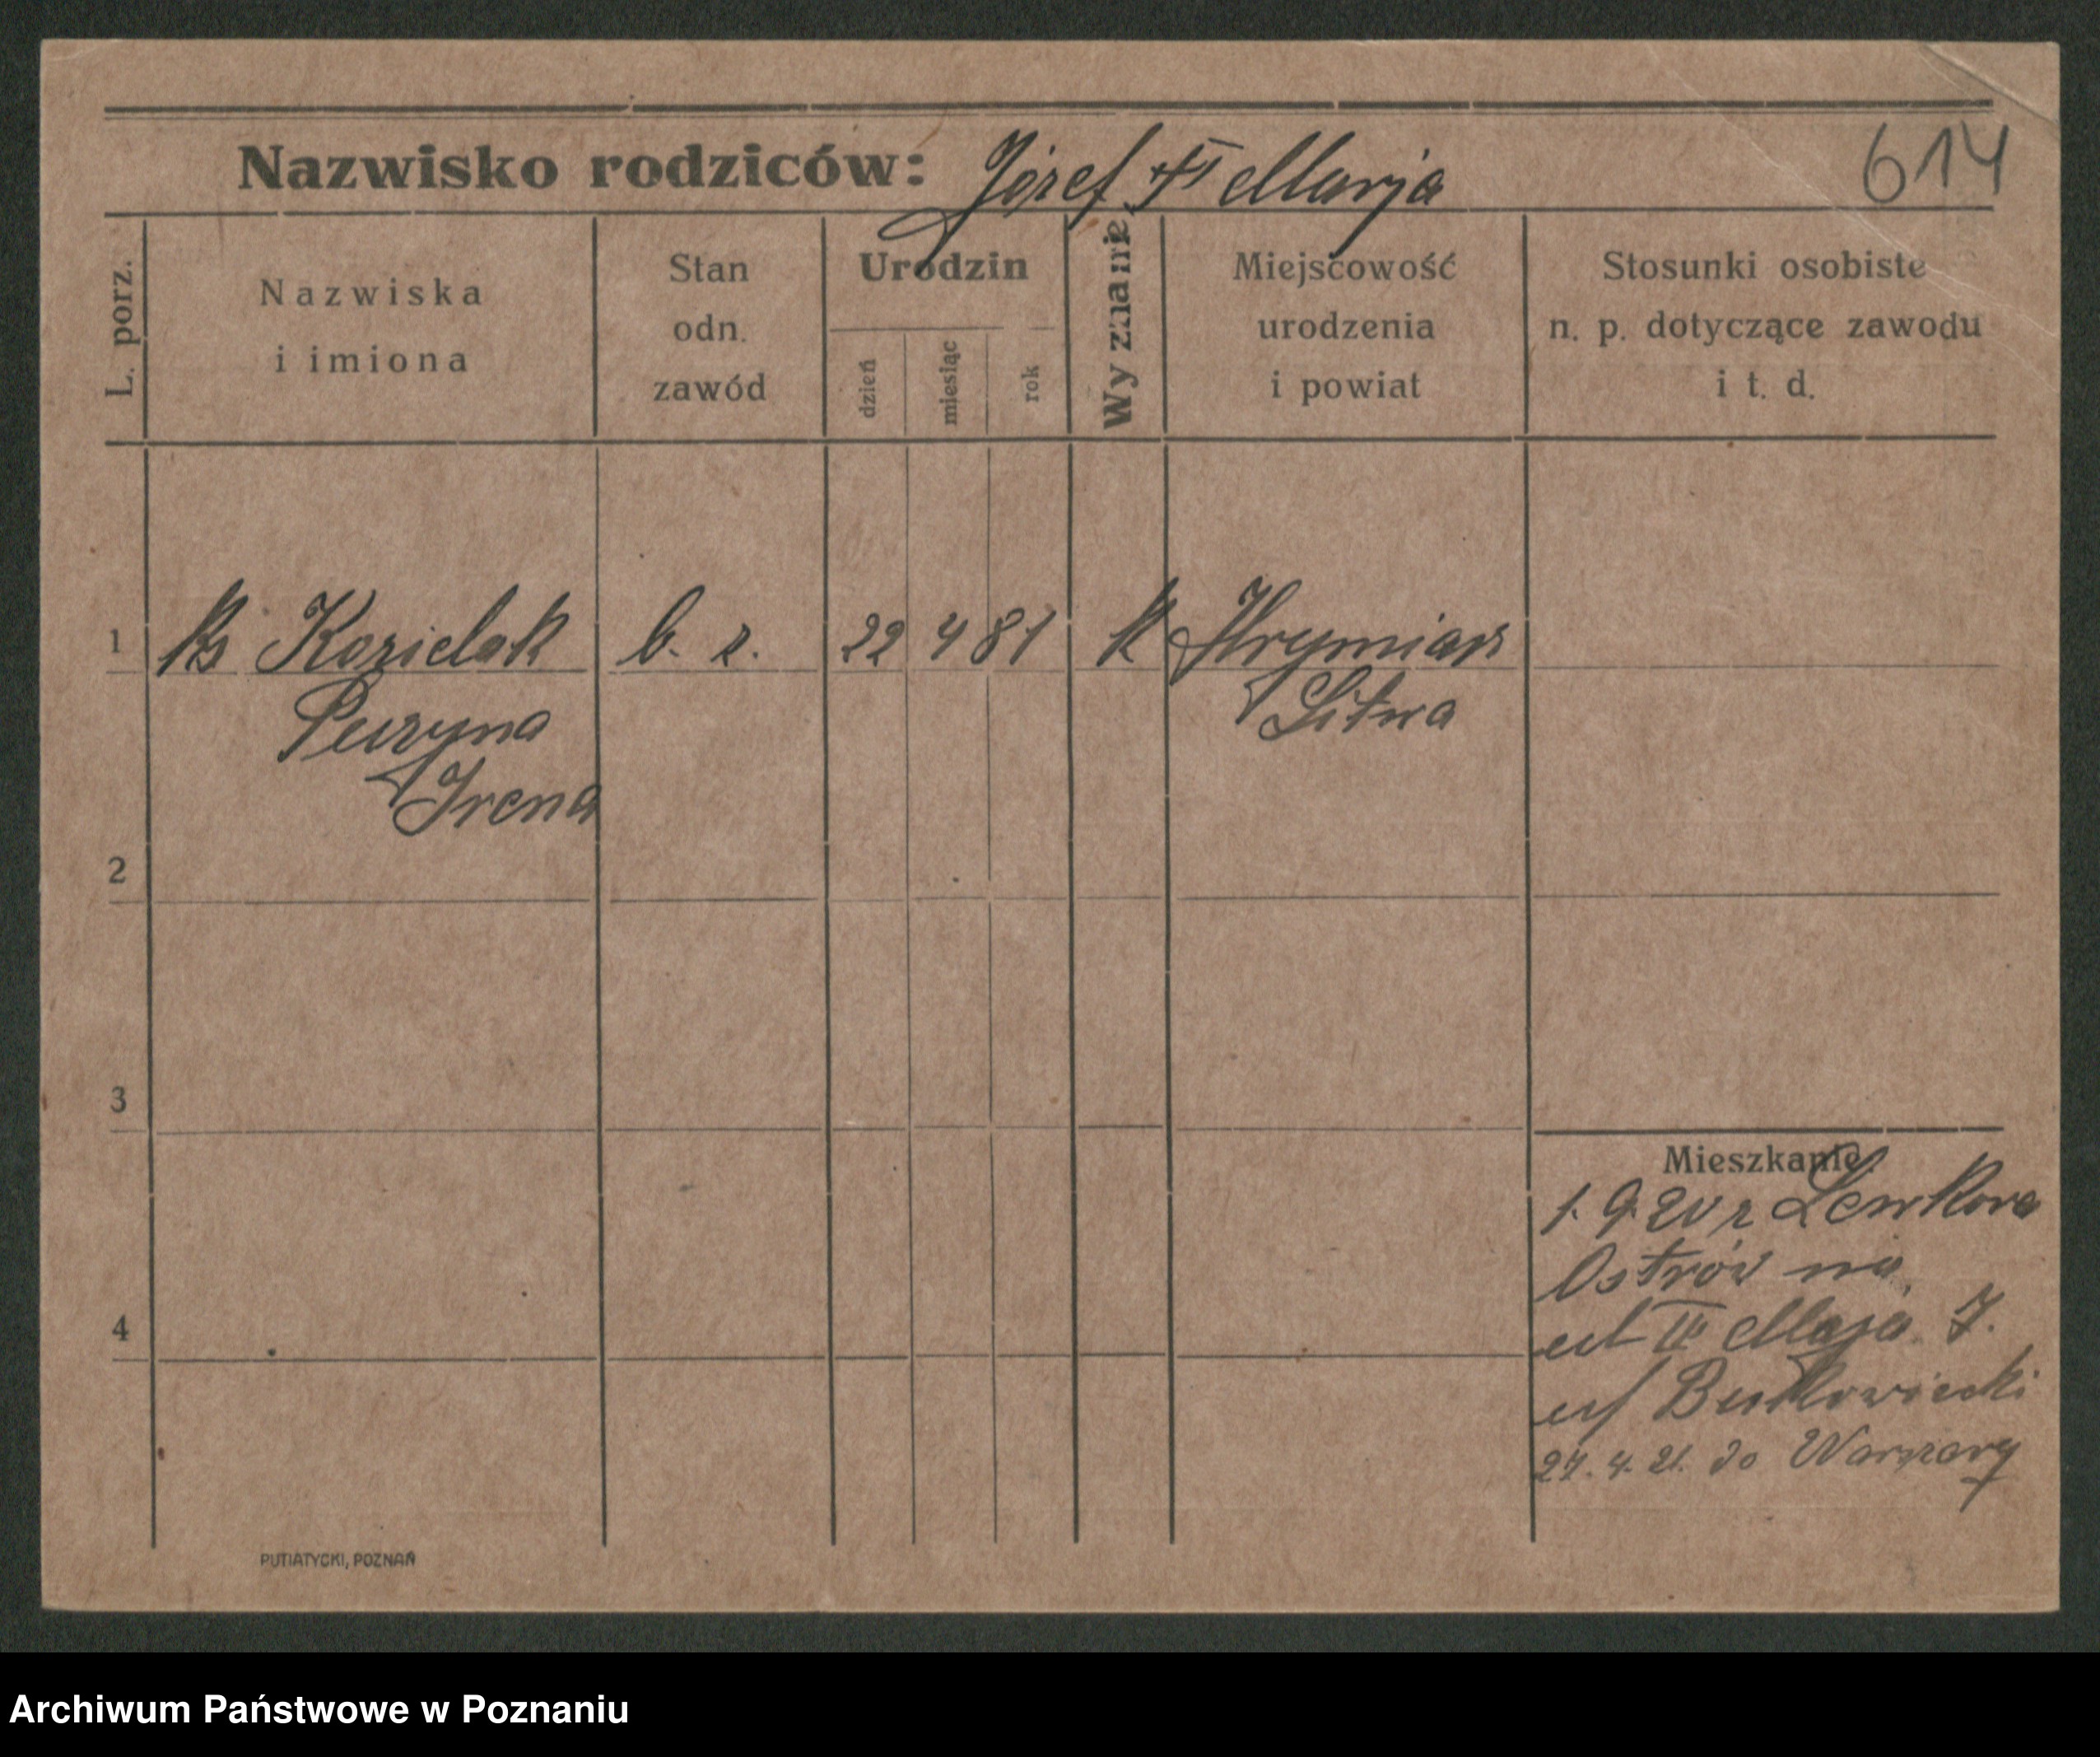 Nazwisko rodziców: Józef Marja
614
L. porz.
Nazwiska
i imiona
Stan
odn.
zawód
Urodzin
dzień
miesiąc
rok
Wyznanie
Miejscowość
urodzenia
i powiat
Stosunki osobiste
n. p. dotyczące zawodu
i t. d.
1 Ks Kozielak b. z. 22 4 81 k
Puzyna Litwa
Irena
2
3
4
Mieszkanie.
1. 9. 20 z Lenkowa
Ostrów na
ul III Maja 7.
Butkowiecki
27. 4. 21. do Warszawy
PUTIATYCKI, POZNAŃ
Archiwum Państwowe w Poznaniu